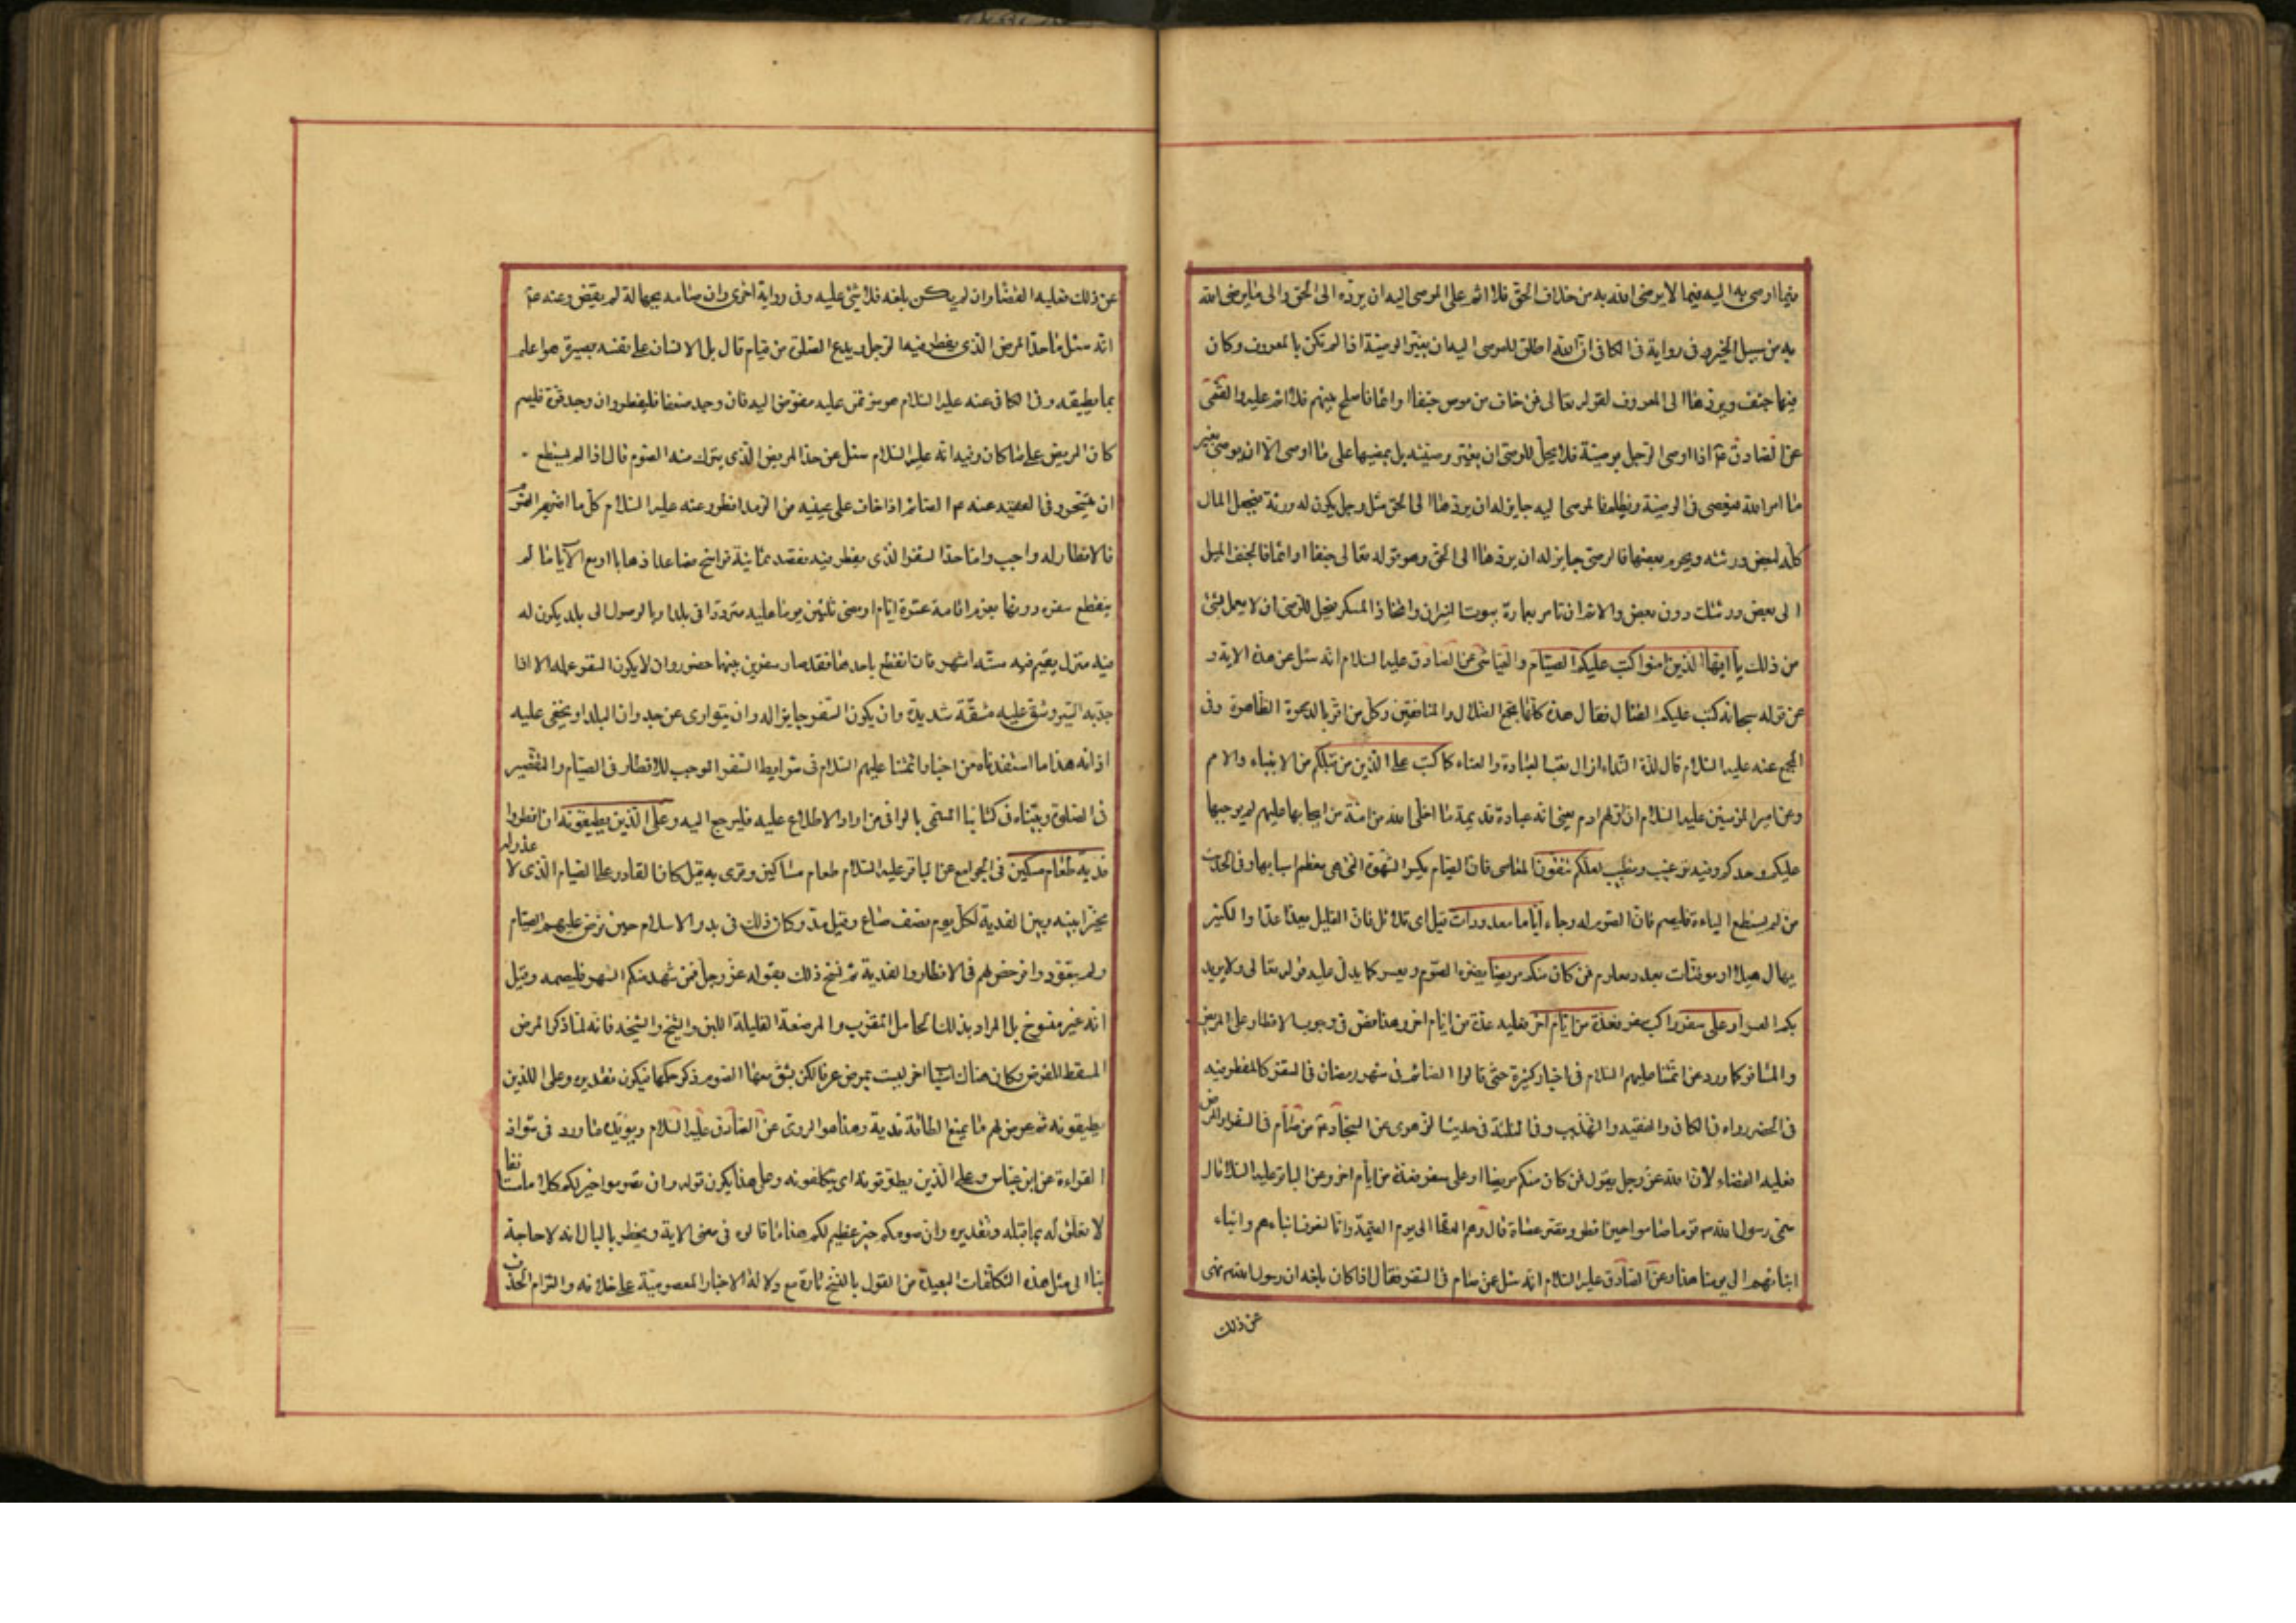 فيما اوصى به اليه فيما لا يرضى الله به من خلاف الحق فلا اثم على الموصى اليه ان يرده الى الحق والى ما يرضى الله
به من سبيل الخير وفى رواية فى الكافى ان الله اطلق للموصى اليه ان يغير الوصية اذا لم تكن بالمعروف وكان
فيها جنف ويردها الى المعروف لقوله تعالى فمن خاف من موص جنفا او اثما فاصلح بينهم فلا اثم عليه والقمى
عن الصادق ع اذا اوصى الرجل بوصية فلا يحل للوصى ان يغير وصيته بل يمضيها على ما اوصى الا ان يوصى بغير
ما امر الله فيعصى فى الوصية ويظلم فالموصى اليه جايز له ان يردها الى الحق مثل رجل يكون له ورثة فيجعل المال
كله لبعض ورثته ويحرم بعضها فالوصى جايز له ان يردها الى الحق وهو قوله تعالى جنفا او اثما فالجنف الميل
الى بعض ورثتك دون بعض والاثم ان تامر بعمارة بيوت النيران واتخاذ المسكر فيحل للوصى ان لا يعمل بشئ
من ذلك يا ايها الذين امنوا كتب عليكم الصيام والعياشى عن الصادق عليه السلام انه سئل عن هذه الاية و
عن قوله سبحانه كتب عليكم القتال فقال هذه كلها يجمع الضلال والمنافقين وكل من اقر بالدعوة الظاهرة وفى
المجمع عنه عليه السلام قال لذة النداء ازال تعب العبادة والعناء كما كتب على الذين من قبلكم من الانبياء والامم
وعن امير المؤمنين عليه السلام ان اولهم ادم يعنى انه عبادة قديمة ما اخلى الله من امته من ايجابها عليهم لم يوجبها
عليكم وحدكم وفيه ترغيب وتطييب لعلكم تتقون المعاصى فان الصيام يكسر الشهوة التى هى معظم اسبابها وفى الحديث
من لم يستطع الباءة فليصم فان الصوم له وجاء اياما معدودات قيل اى قلائل فان القليل يعد عدا والكثير
يهال هيلا او موقتات بعدد معلوم فمن كان منكم مريضا يضره الصوم ويعسر كما يدل عليه قوله تعالى ولا يريد
بكم العسر او على سفر راكب سفر فعدة من ايام اخر فعليه عدة من ايام اخر وهذا نص فى وجوب الافطار على المريض
والمسافر كما ورد عن ائمتنا عليهم السلام فى اخبار كثيرة حتى قالوا الصائم فى شهر رمضان فى السفر كالمفطر فيه
فى الحضر رواه فى الكافى والفقيه والتهذيب وفى الثلثة فى حديث الزهرى عن السجاد ع من صام فى السفر او المرض
فعليه القضاء لان الله عز وجل يقول فمن كان منكم مريضا او على سفر فعدة من ايام اخر وعن الباقر عليه السلام قال
سمى رسول الله ص قوما صاموا حين افطر وقصر عصاة قال وهم العصاة الى يوم القيمة وانا لنعرف ابناءهم وابناء
ابنائهم الى يومنا هذا وعن الصادق عليه السلام انه سئل عن صام فى السفر فقال اذا كان بلغه ان رسول الله ص نهى
عن ذلك
عن ذلك فعليه القضا وان لم يكن بلغه فلا شئ عليه وفى رواية اخرى وان صامه بجهالة لم يقض وعنه ع
انه سئل ما حد المرض الذى يفطر فيه الرجل ويدع الصلوة من قيام قال بل الانسان على نفسه بصيرة هو اعلم
بما يطيقه وفى الكافى عنه عليه السلام هو مؤتمن عليه مفوض اليه فان وجد ضعفا فليفطر وان وجد قوة فليصم
كان المريض على ما كان وفيه انه عليه السلام سئل عن حد المريض الذى يترك منه الصوم قال اذا لم يستطع
ان يتسحر وفى الفقيه عنه ع الصائم اذا خاف على عينيه من الرمد افطر وعنه عليه السلام كل ما اضر به الصوم
فالافطار له واجب واما حد السفر الذى يفطر فيه فقصد ثمانية فراسخ فصاعدا ذهابا او مع الاياب ما لم
ينقطع سفره دونها بعزم اقامة عشرة ايام او مضى ثلثين يوما عليه مترددا فى بلد او بالوصول الى بلد يكون له
فيه منزل يقيم فيه ستة اشهر فان انقطع باحدها فقد صار سفرين بينهما حضور وان لا يكون السفر عمله الا اذا
جد به السير وشق عليه مشقة شديدة وان يكون السفر جايزا له وان يتوارى عن جدران البلد او يخفى عليه
اذانه هذا ما استفدناه من اخبار ائمتنا عليهم السلام فى شرايط السفر الموجب للافطار فى الصيام والتقصير
فى الصلوة وبيناه فى كتابنا المسمى بالوافى من اراد الاطلاع عليه فليرجع اليه وعلى الذين يطيقونه ان افطروا
فدية طعام مسكين فى الجوامع عن الباقر عليه السلام طعام مساكين وقرى به قيل كان القادر على الصيام الذى لا عذر له
مخيرا بينه وبين الفدية لكل يوم نصف صاع وقيل مد وكان ذلك فى بدو الاسلام حين فرض عليهم الصيام
ولم يتعودوا فرخص لهم فى الافطار والفدية ثم نسخ ذلك بقوله عز وجل فمن شهد منكم الشهر فليصمه وقيل
انه غير منسوخ بل المراد بذلك الحامل المقرب والمرضعة القليلة اللبن والشيخ والشيخة فانه لما ذكر المرض
المسقط للفرض وكان هناك اسبابا اخر ليست بمرض عرفا لكن يشق معها الصوم ذكر حكمها فيكون تقديره وعلى الذين
يطيقونه ثم عرض لهم ما يمنع الطاقة فدية وهذا هو المروى عن الصادق عليه السلام ويؤيده ما ورد فى شواذ
القراءة عن ابن عباس وعلى الذين يطوقونه اى يتكلفونه وعلى هذا يكون قوله وان تصوموا خير لكم كلاما مستانفا
لا تعلق له بما قبله وتقديره وان صومكم خير عظيم لكم هذا ما قالوه فى معنى الاية ويخطر بالبال انه لا حاجة
بنا الى مثل هذه التكلفات البعيدة من القول بالنسخ تارة مع دلالة الاخبار المعصومية على خلافه والتزام الحذف